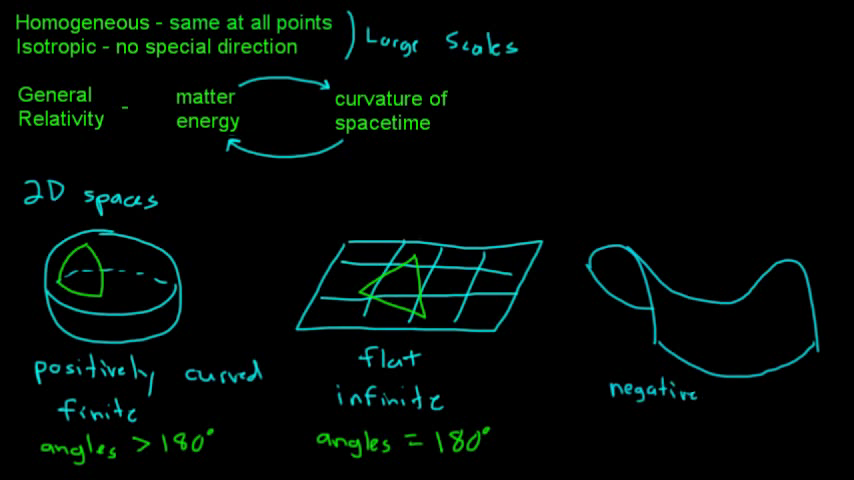 Homogeneous - same at all points
Isotropic - no special direction
) Large Scales
General Relativity - matter energy
curvature of spacetime
2D spaces
positively curved
finite
angles > 180°
flat
infinite
angles = 180°
negative